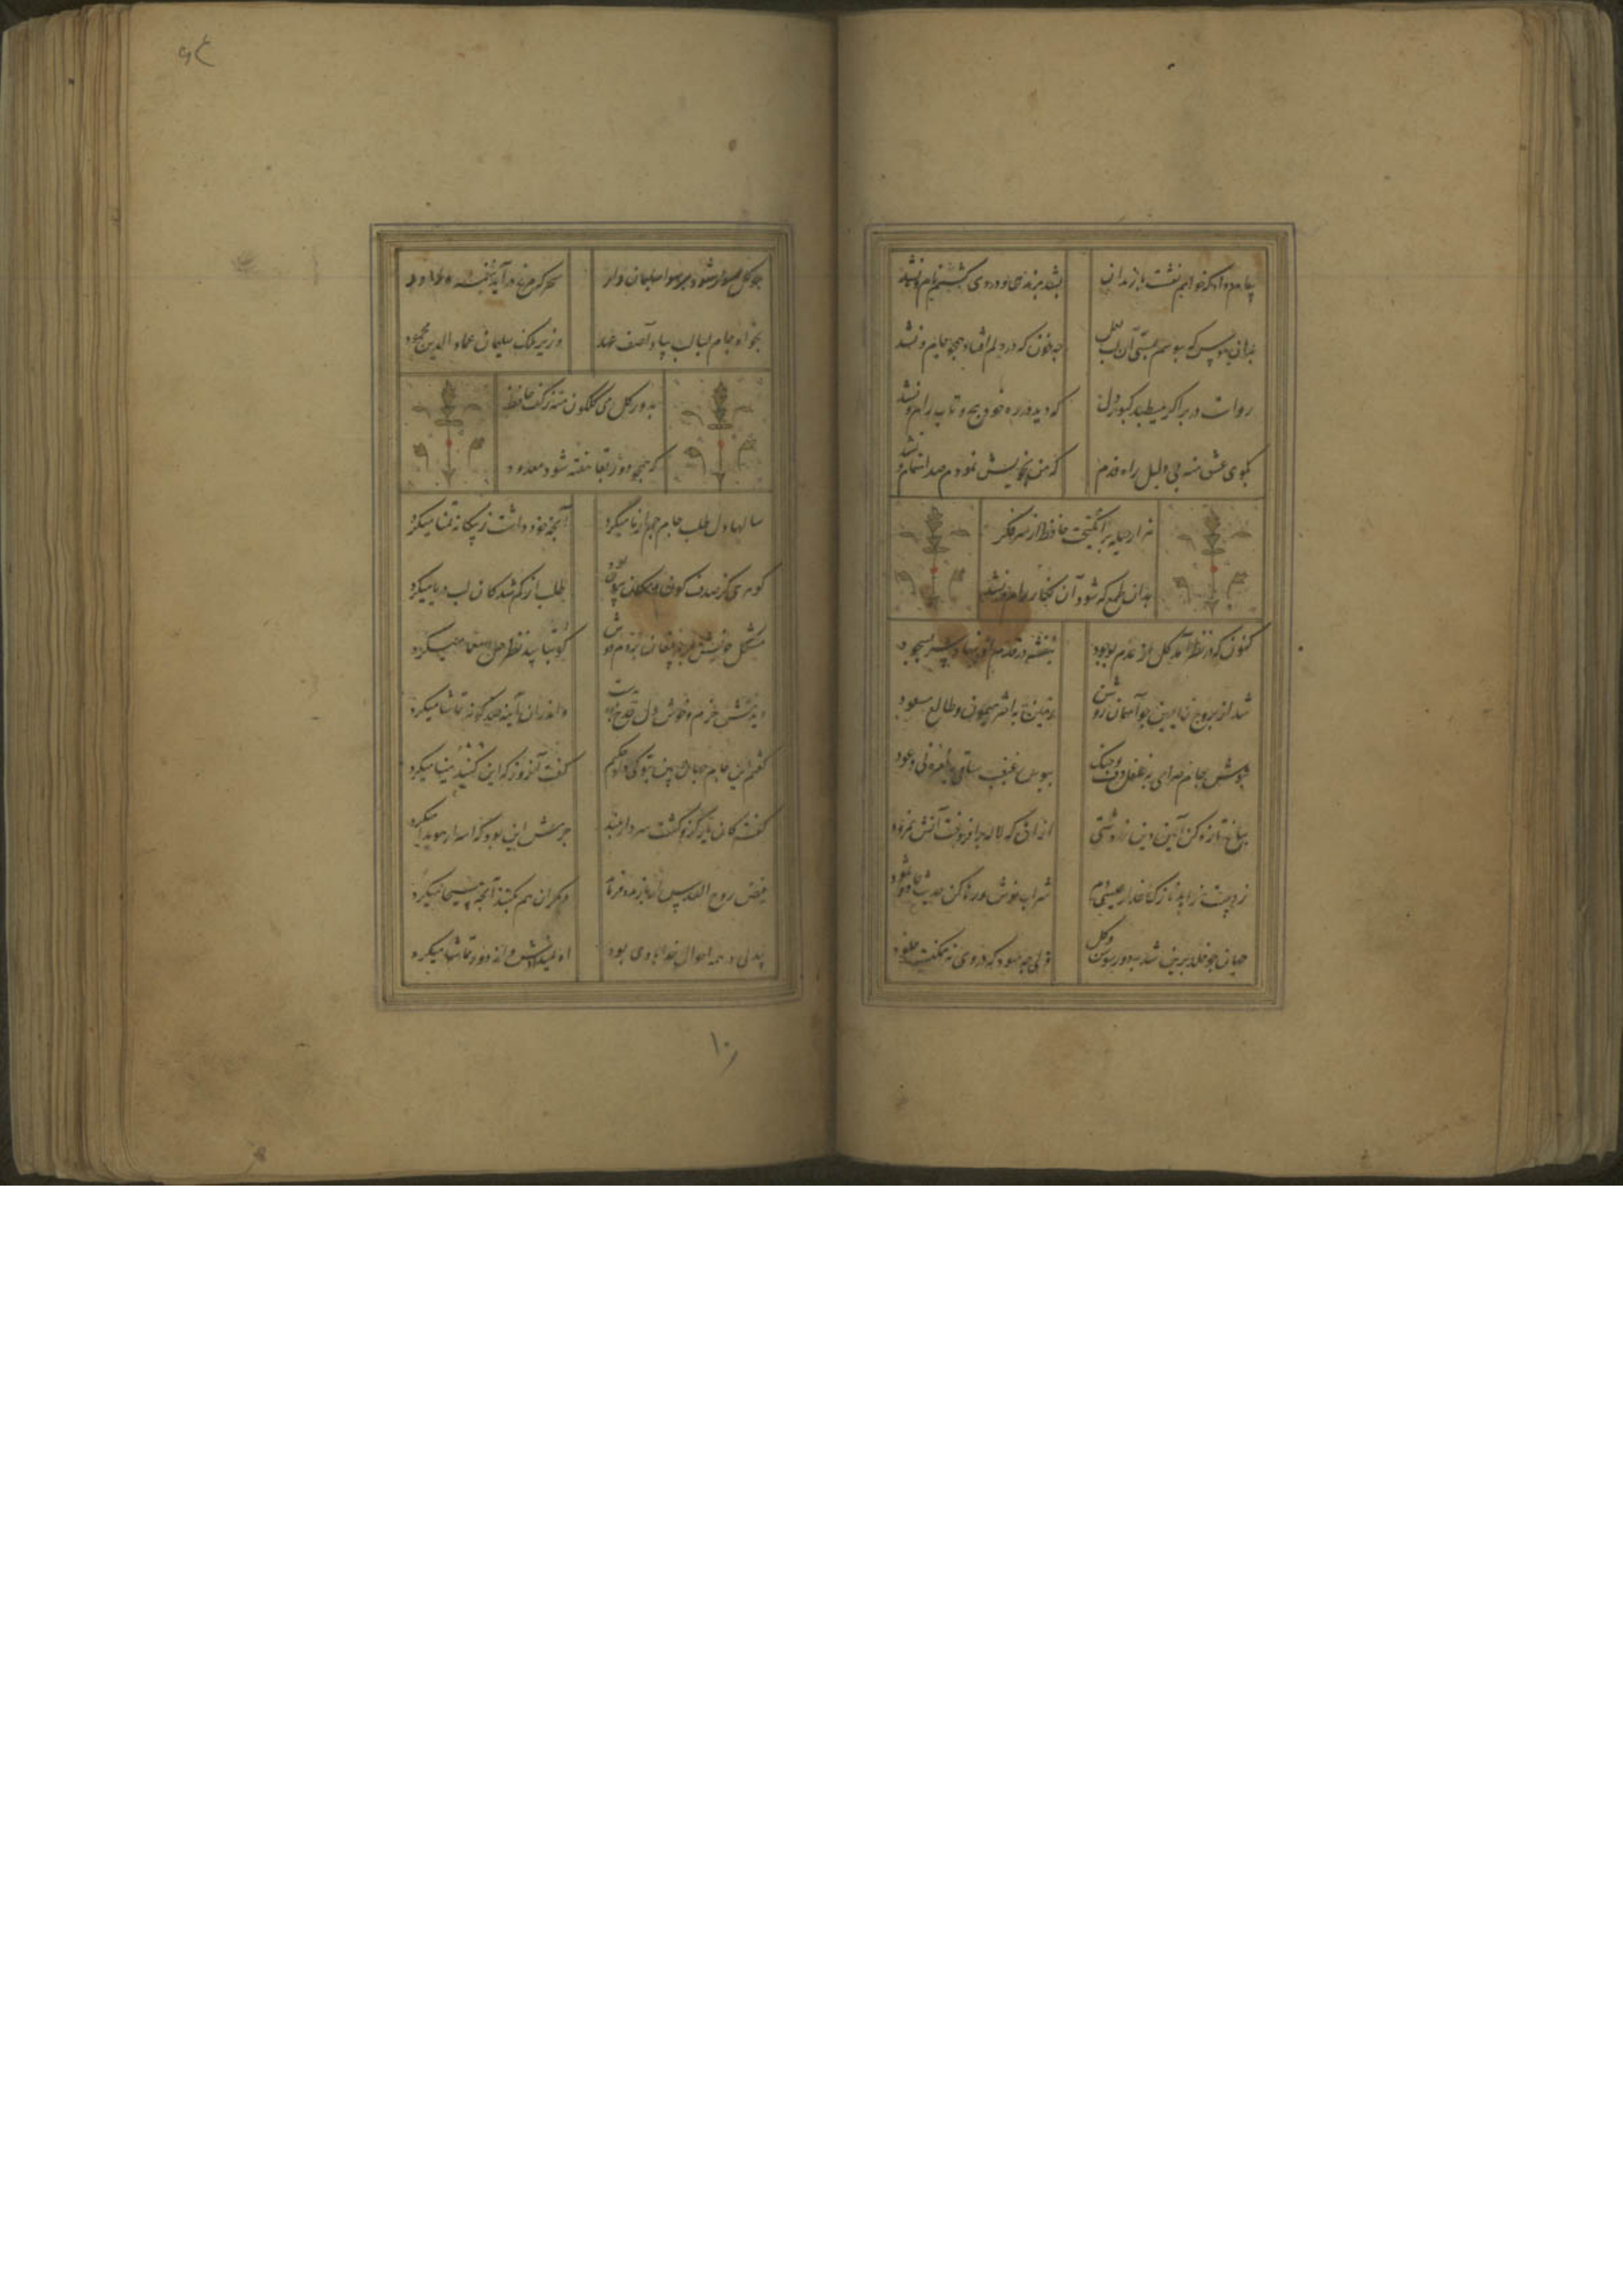 پیام داد که خواهم نشست با رندان بشد برندی و دردی کشیم نام و نشد
بدان هوس که ببوسم بمستی آن لب لعل چه خون که در دلم افتاد همچو جام و نشد
رواست در بر اگر میطپد کبوتر دل که دید در ره خود پیچ و تاب دام و نشد
بکوی عشق منه بی دلیل راه قدم که من بخویش نمودم صد اهتمام و نشد
هزار حیله برانگیخت حافظ از سر فکر
بدان طمع که شود آن نگار رام و نشد
کنون که در نظر آمد گل از عدم بوجود بنفشه در قدم او نهاد سر بسجود
شد از بروج ریاحین چو آسمان روشن زمین به اختر میمون و طالع مسعود
بنوش جام صبوحی به دف و چنگ ببوس غبغب ساقی بنغمه نی و عود
بباغ تازه کن آیین دین زردشتی از آن که لاله برافروخت آتش نمرود
ز دست زاهد نازک عذار عیسی دم شراب نوش و رها کن حدیث عاد و ثمود
جهان چو خلد برین شد بدور سوسن و گل ولی چه سود که در وی نه ممکنست خلود
چو گل سوار شود بر هوا سلیمان وار سحر که مرغ در آید بنغمه داود
بخواه جام لبالب بیاد آصف عهد وزیر ملک سلیمان عماد الدین محمود
بدور گل می گلگون منه ز کف حافظ
که همچو روز بقا هفته شود معدود
سالها دل طلب جام جم از ما میکرد آنچه خود داشت ز بیگانه تمنا میکرد
گوهری کز صدف کون و مکان بیرون بود طلب از گم شدگان لب دریا میکرد
مشکل خویش بر پیر مغان بردم دوش کو بتایید نظر حل معما میکرد
دیدمش خرم و خوش دل قدح بدست و اندران آینه صد گونه تماشا میکرد
گفتم این جام جهان بین بتو کی داد حکیم گفت آنروز که این گنبد مینا میکرد
گفت کان یار کزو گشت سر دار بلند جرمش این بود که اسرار هویدا میکرد
فیض روح القدس ار باز مدد فرماید دیگران هم بکنند آنچه مسیحا میکرد
بیدلی در همه احوال خدا با وی بود او نمیدیدش و از دور تماشا میکرد